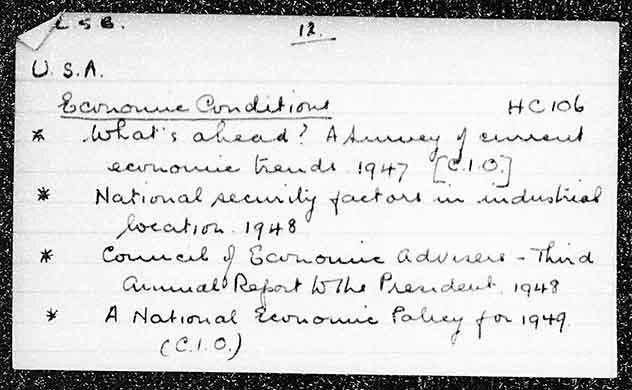 L S E.
12.
U.S.A.
Economic Conditions HC106
* What's ahead? A Survey of current
economic trends. 1947 [C.I.O.]
* National security factors in industrial
location. 1948
* Council of Economic Advisers - Third
Annual Report to the President. 1948
* A National Economic Policy for 1949.
(C.I.O.)